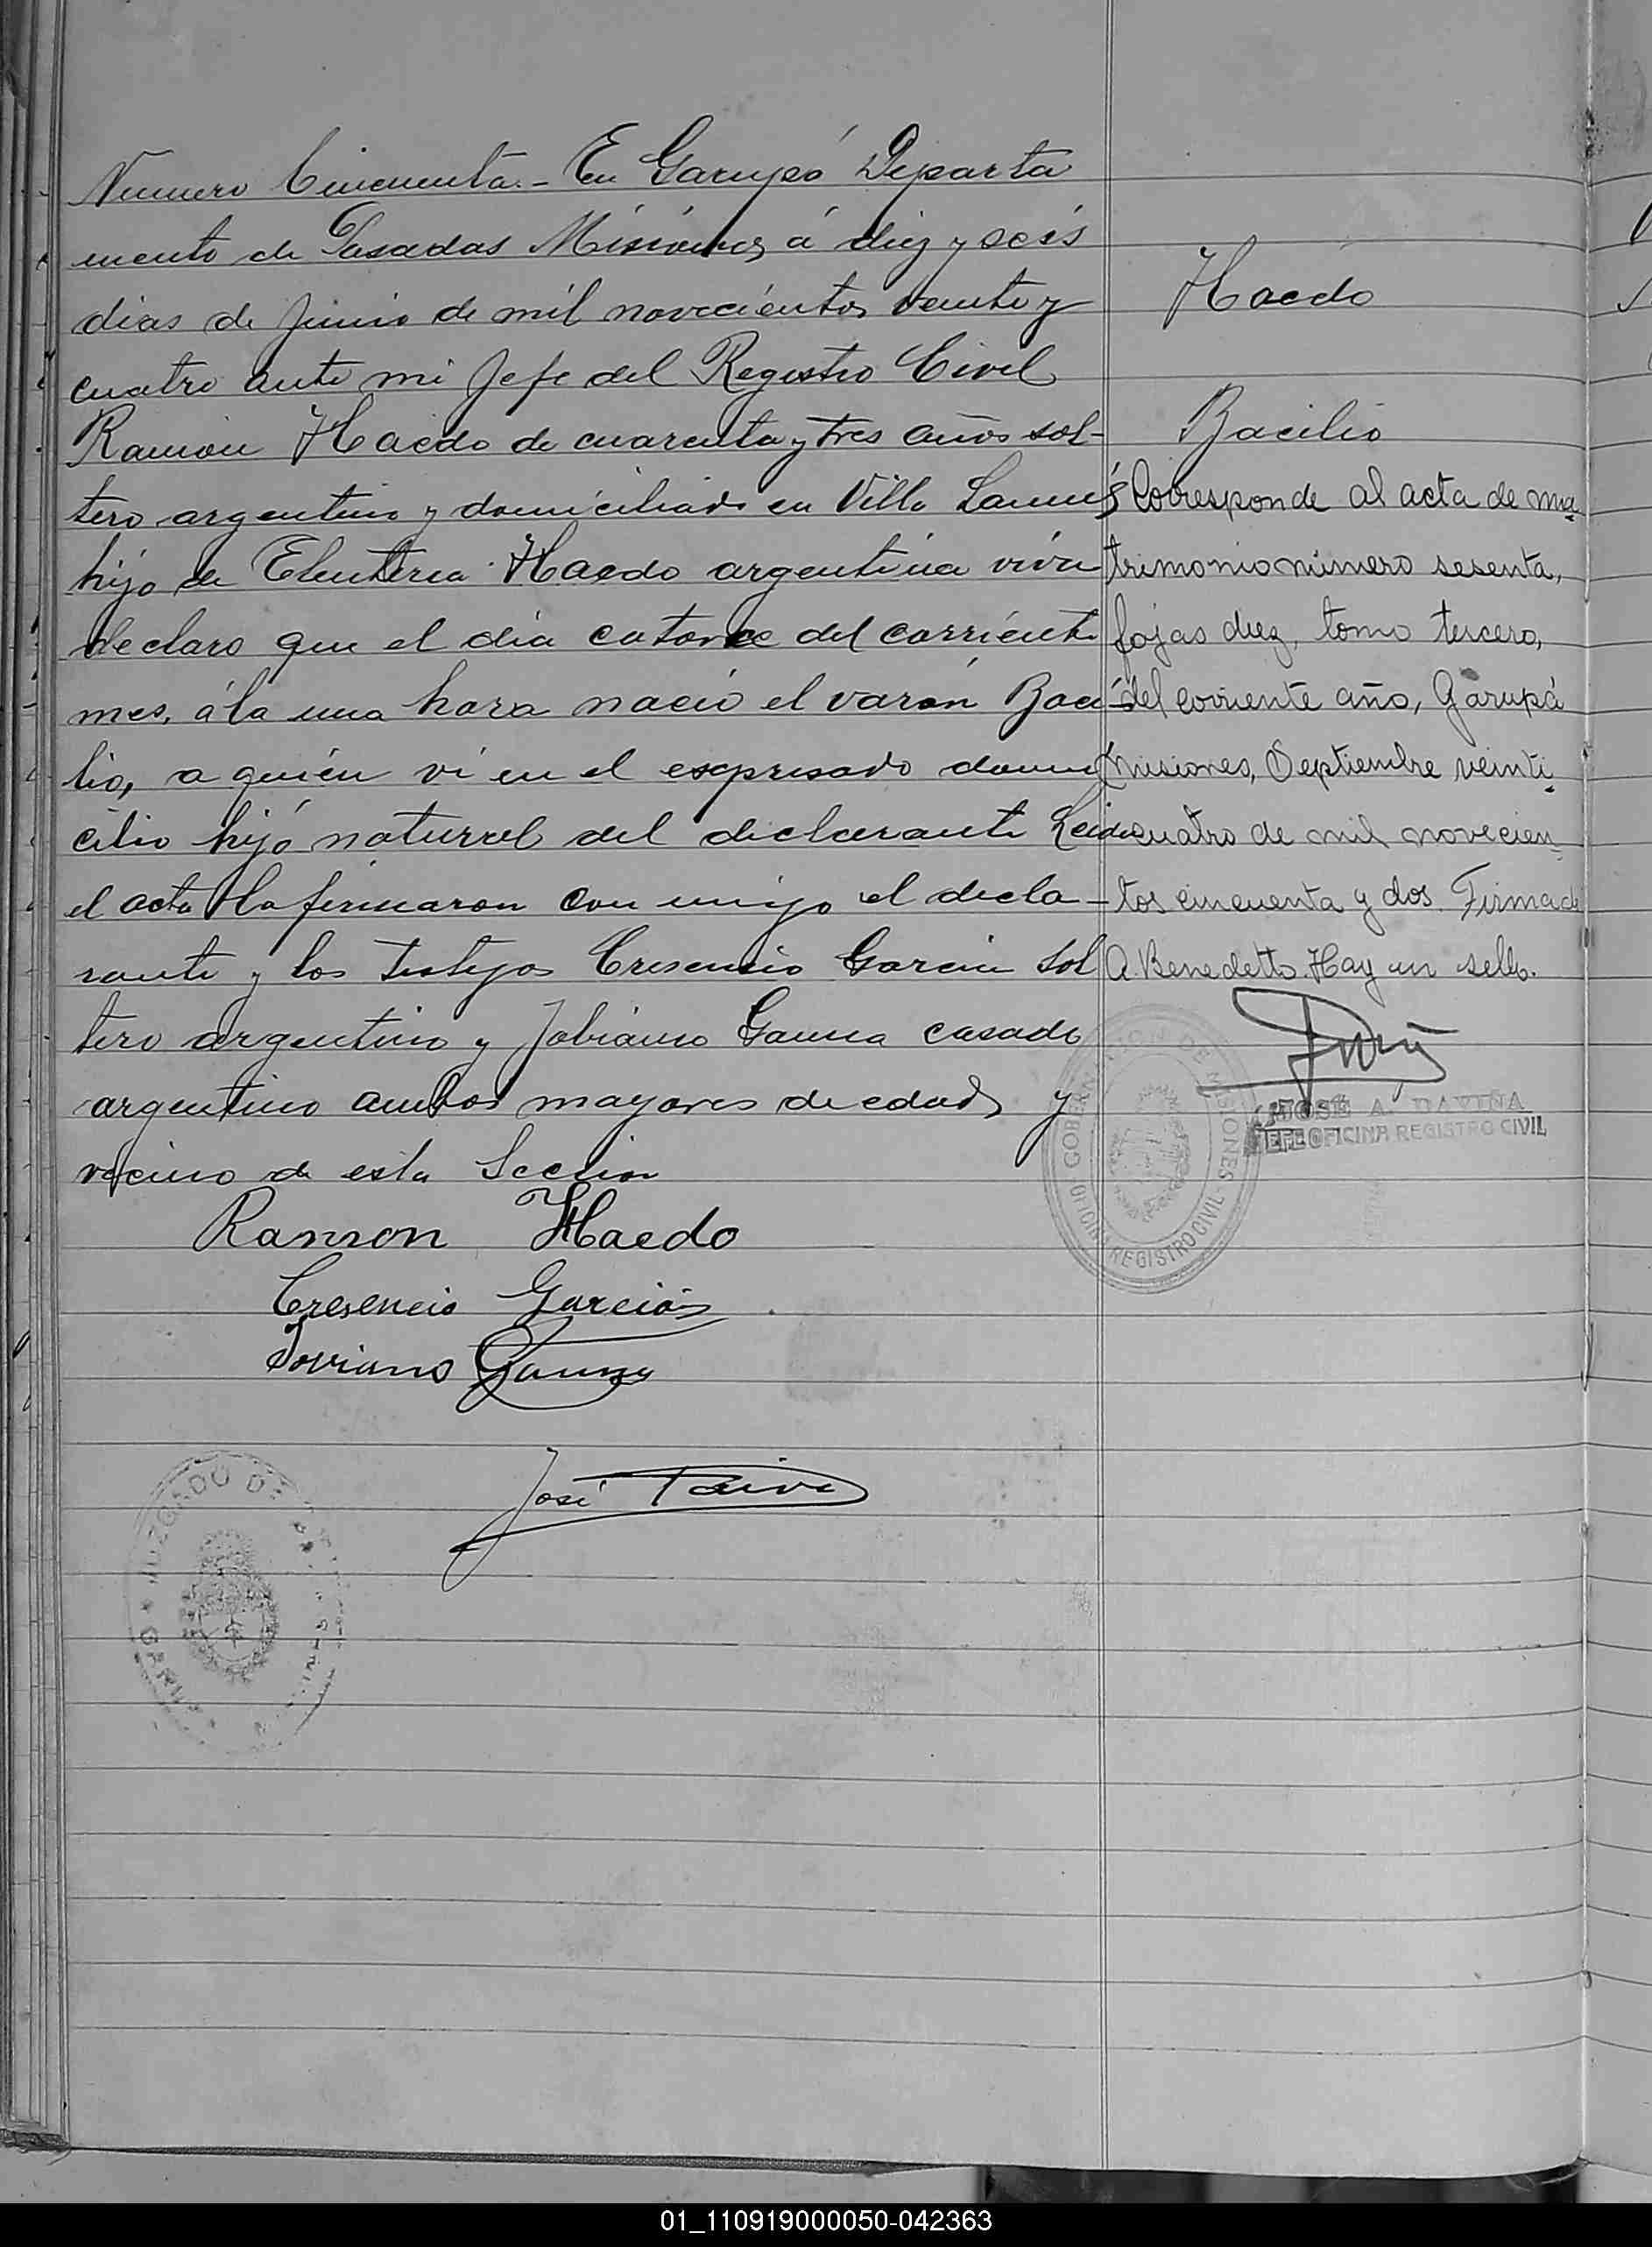 Numero Cincuenta.- En Garupá Departa
mento de Posadas Misiones á diez y seis
dias de Junio de mil novecientos veinte y
cuatro ante mi Jefe del Registro Civil
Ramón Haedo de cuarenta y tres años sol-
tero argentino y domiciliado en Villa Lanus
hijo de Eleuteria Haedo argentina viva
declaro que el dia catorce del corriente
mes, á la una hora nació el varón Baci-
lio, a quién vi en el espresado domi
cilio hijo natural del declarante Leida
el acta la firmaron con migo el decla-
rante y los testigos Cresencio Garcia sol
tero argentino y Gauna casado
argentino ambos mayores de edad y
vecino de esta Seccion
Ramon Haedo
Cresencio Garcia
Gauna
José Paiva
JUZGADO DE
GARUPA
Haedo
Bacilio
Corresponde al acta de ma
trimonio número sesenta,
fojas diez, tomo tercero,
del corriente año, Garupá
Misiones, Septiembre veinti
cuatro de mil novecien
tos cincuenta y dos. Firmado
A. Benedetto. Hay un sello.
JOSÉ A. DAVIÑA
JEFE OFICINA REGISTRO CIVIL
GOBERNACION DE MISIONES
OFICINA REGISTRO CIVIL
01_110919000050-042363